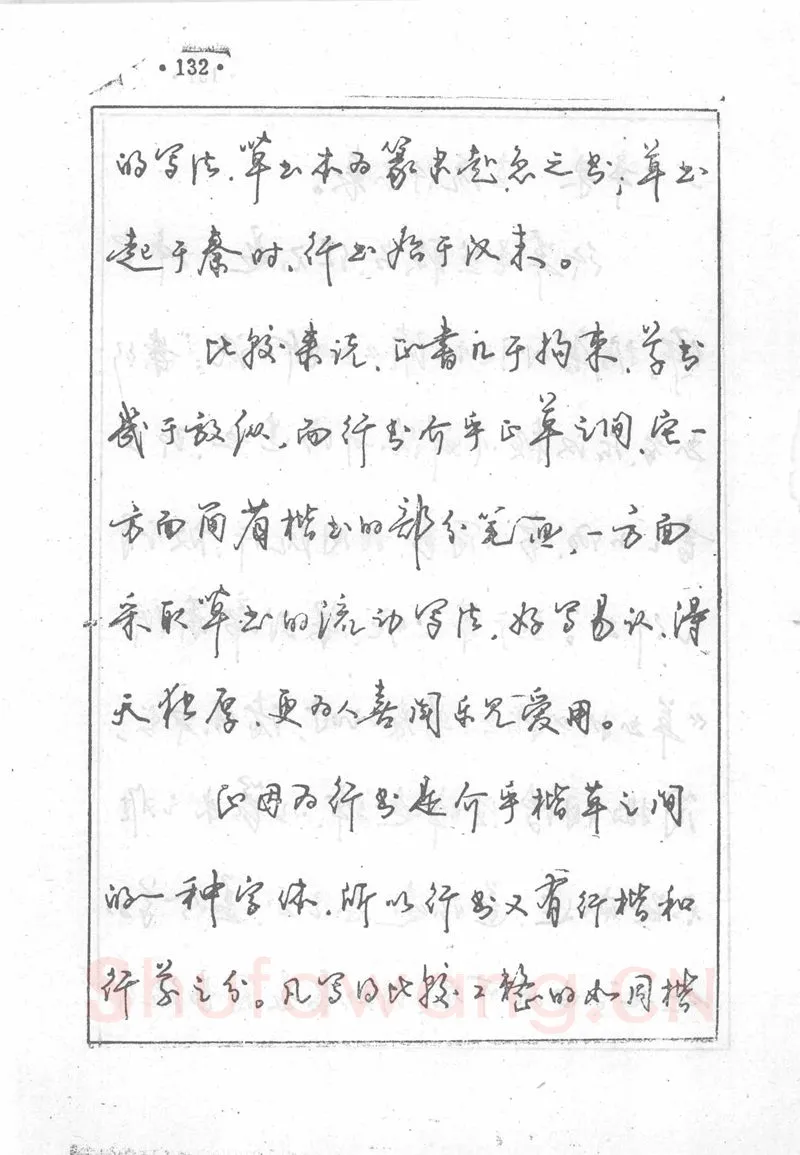 ·132·
的写法,草书本为篆隶赴急之书;草书
起于秦时,行书始于汉末。
比较来说,正书几于拘束,草书
几于放纵,而行书介乎正草之间,它一
方面简省楷书的部分笔画,一方面
采取草书的流动写法,好写易认,得
天独厚,更为人喜闻乐见爱用。
正因为行书是介乎楷草之间
的一种字体,所以行书又有行楷和
行草之分。凡写得比较工整的如同楷
Shufawang.CN